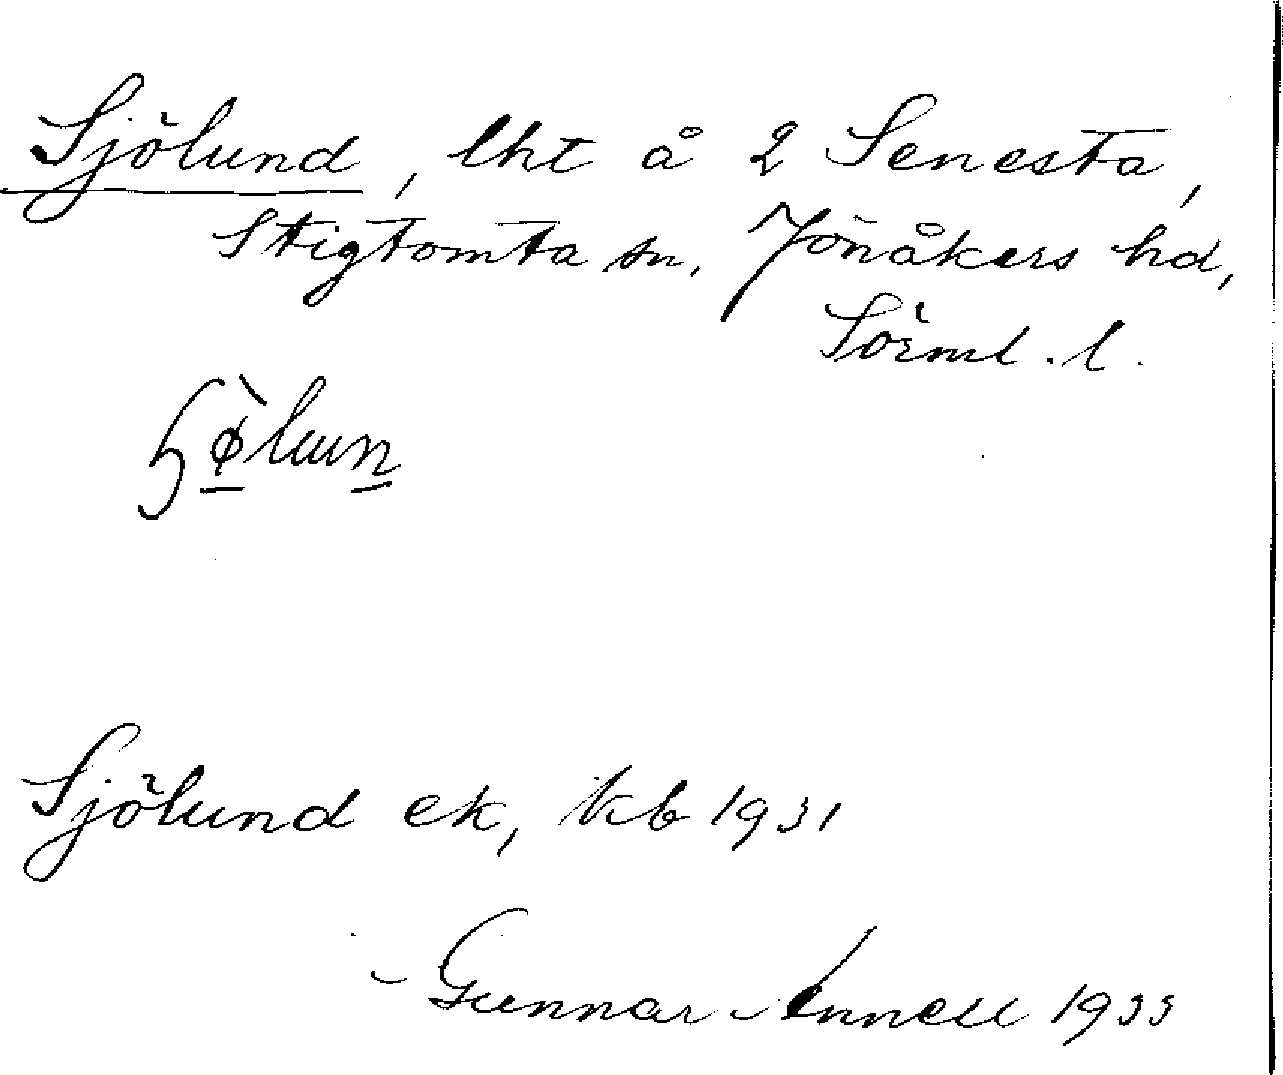 Sjölund, lht å 2 Senesta,
Stigtomta sn, Jönåkers hd,
Sörml. l.
Sjölund ek, kb 1931
Gunnar Annell 1933